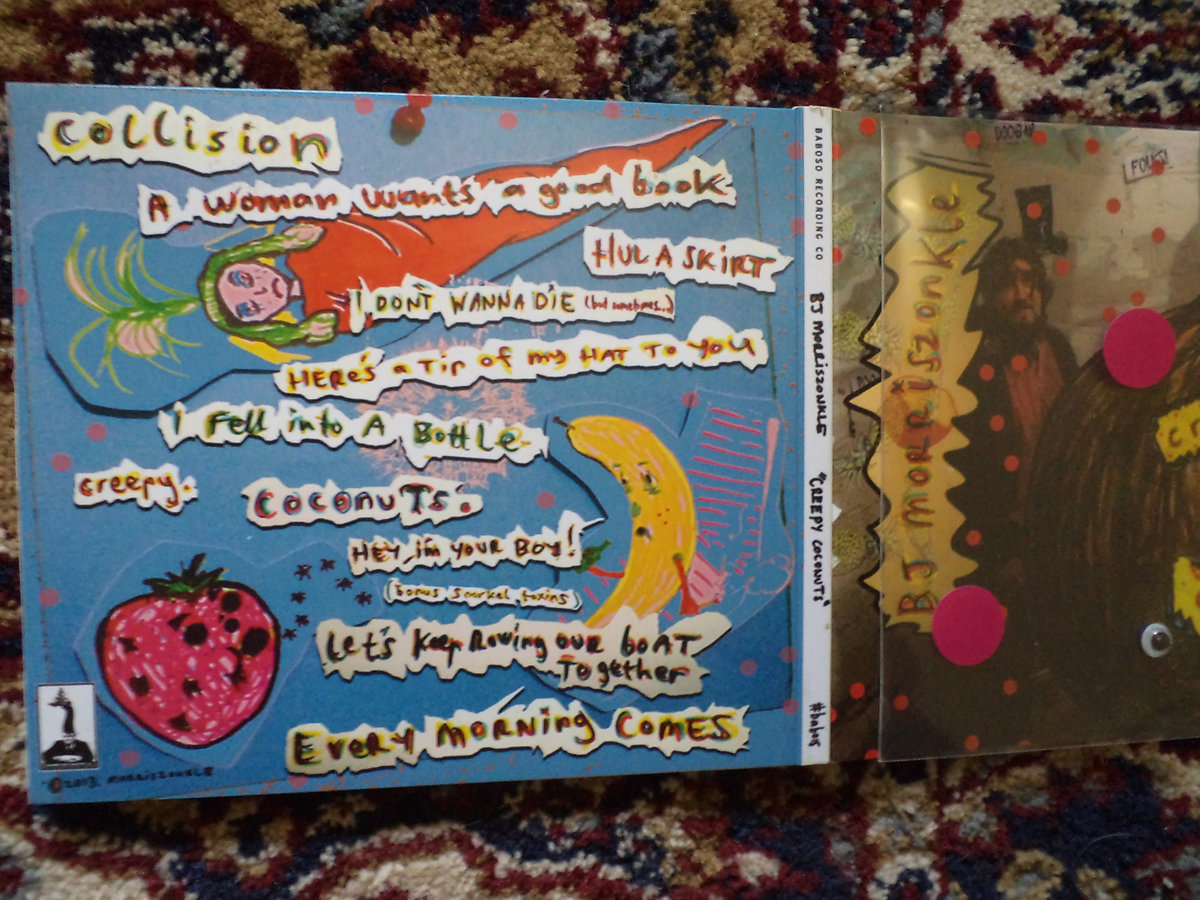 Collision
A Woman wants a good book
HULA SKIRT
I DON'T WANNA DIE (but sometimes..)
HERE'S a Tip of my HAT TO YOU
I Fell into A Bottle
creepy.
COCONUTS.
HEY, i'm YOUR BOY!
(bonus snorkel toxins)
Let's Keep Rowing OUR bOAT
Together
EVERY MORNING COMES
©2013 MORRISZONKLE
BABOSO RECORDING CO
BJ MORRISZONKLE
"CREEPY COCONUTS"
BJ MORRISZONKLE
FOLKS!